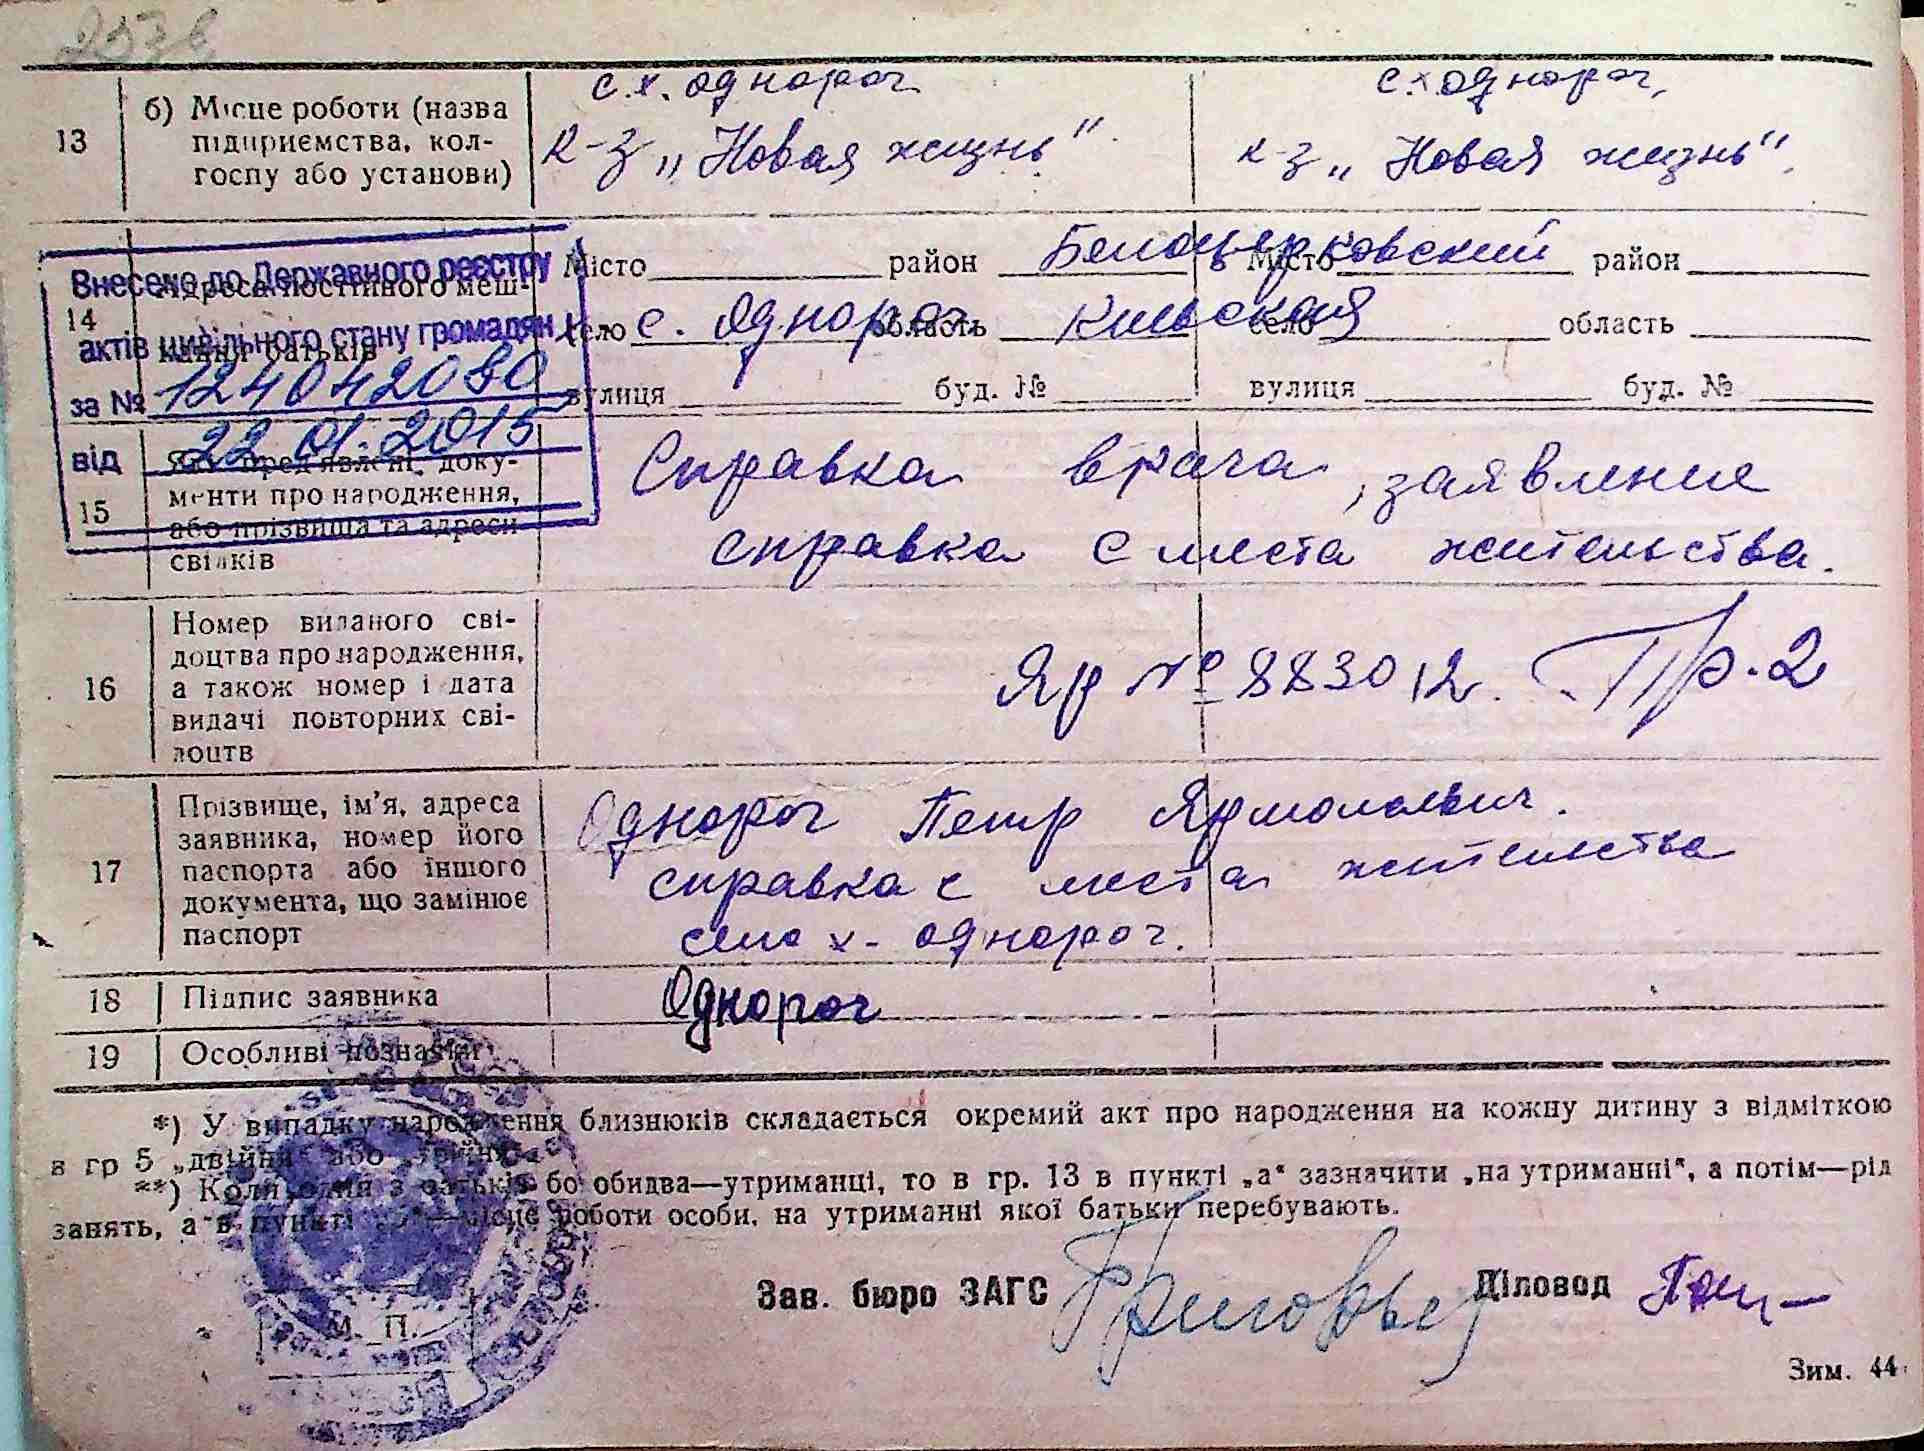 253 в
с.х. однорог с.х однорог,
13 б) Місце роботи (назва підприємства, колгоспу або установи) к-з „Новая жизнь" к-з „Новая жизнь".
Внесено до Державного реєстру
актів цивільного стану громадян
за № 1240420
від 22.01.2015
14 Адреса постійного меш-
кання батьків
Місто район Белоцерковский Місто район
село с. Однорог область Киевская село область
вулиця буд. № вулиця буд. №
15 Які пред'явлені доку-
менти про народження,
або прізвища та адреси
свідків
Справка врача, заявление
справка с места жительства.
16 Номер виданого сві-
доцтва про народження,
а також номер і дата
видачі повторних сві-
доцтв
Яр № 883012. Пр.2
17 Прізвище, ім'я, адреса
заявника, номер його
паспорта або іншого
документа, що замінює
паспорт
Однорог Петр Ярмолович.
справка с места жительства
село х- однорог.
18 Підпис заявника Однорог
19 Особливі познач
*) У випадку народження близнюків складається окремий акт про народження на кожну дитину з відміткою
в гр 5 „двійня" або „трійня".
**) Коли один з батьків або обидва—утриманці, то в гр. 13 в пункті „а" зазначити „на утриманні", а потім—рід
занять, а в пункті „б"—місце роботи особи, на утриманні якої батьки перебувають.
Зав. бюро ЗАГС Григорьев Діловод
М. П.
Зим. 44